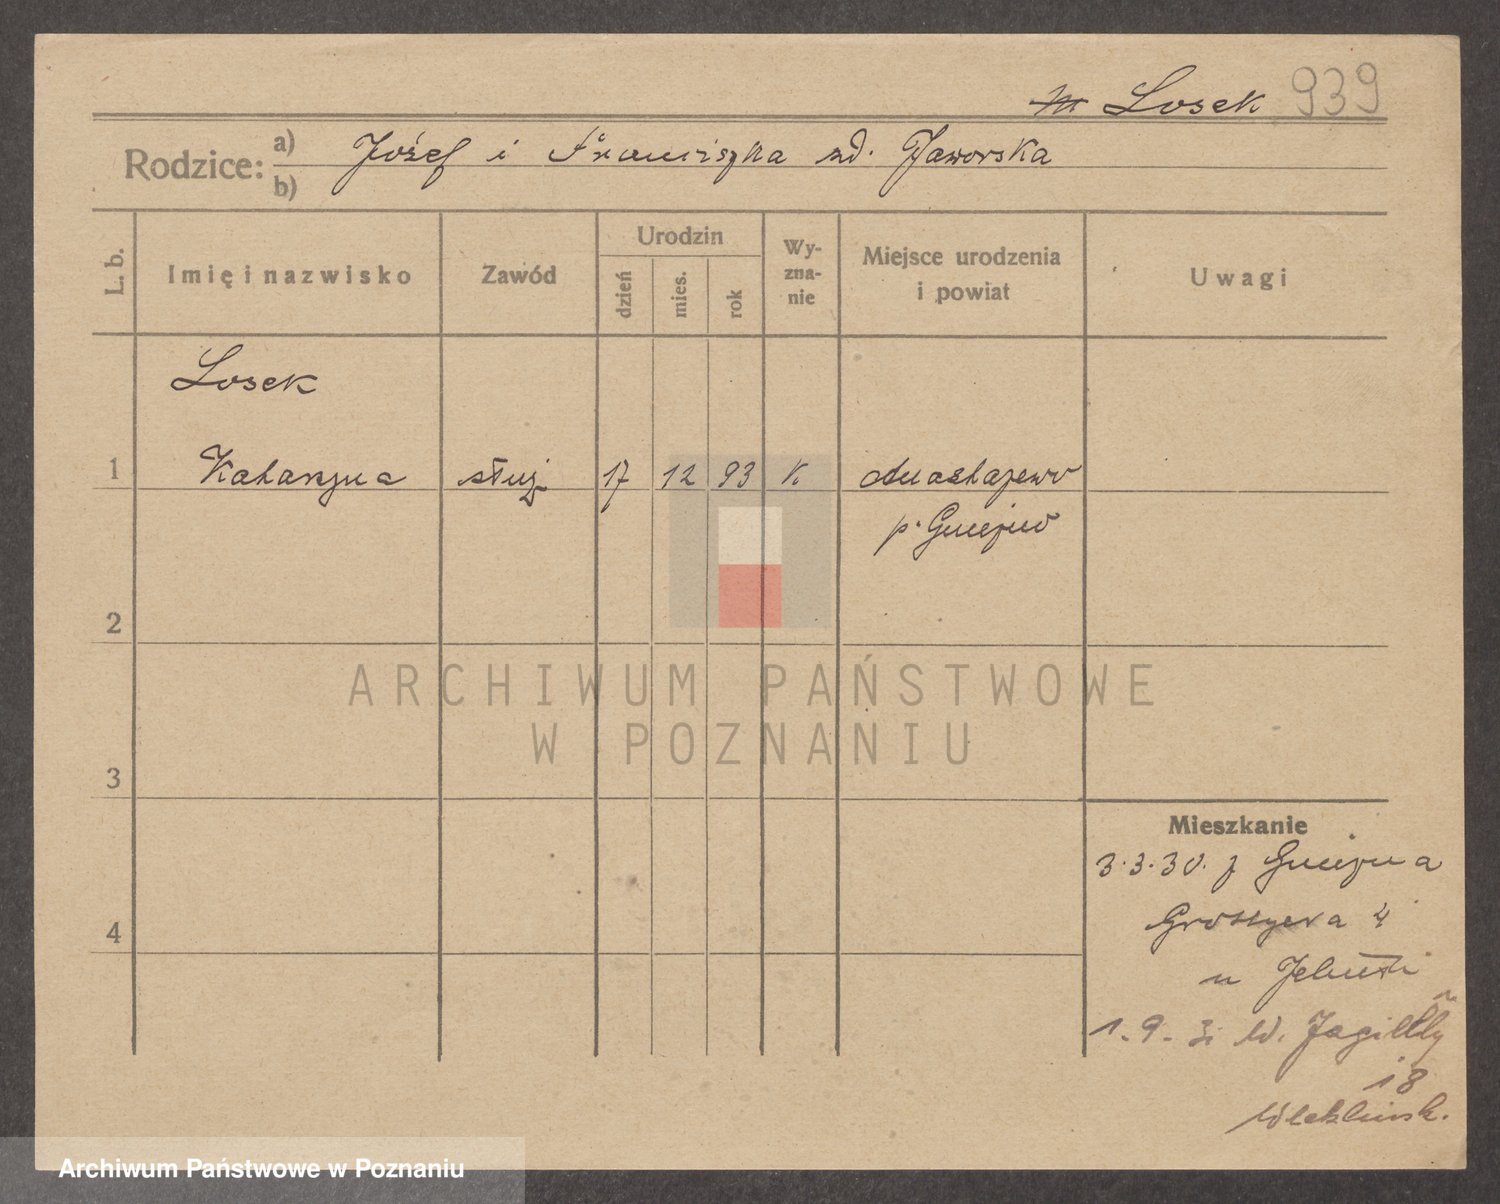 Losek 939
Rodzice: a) Józef i Franciszka zd. Jaworska
b)
L. b.
Imię i nazwisko
Zawód
Urodzin
dzień
mies.
rok
Wy-
zna-
nie
Miejsce urodzenia
i powiat
Uwagi
Losek
1 Katarzyna służ. 17 12 93 K
p. Gniezno
2
3
4
Mieszkanie
3.3.30. z Gniezna
4
u
1.9.
18
ARCHIWUM PAŃSTWOWE
W POZNANIU
Archiwum Państwowe w Poznaniu